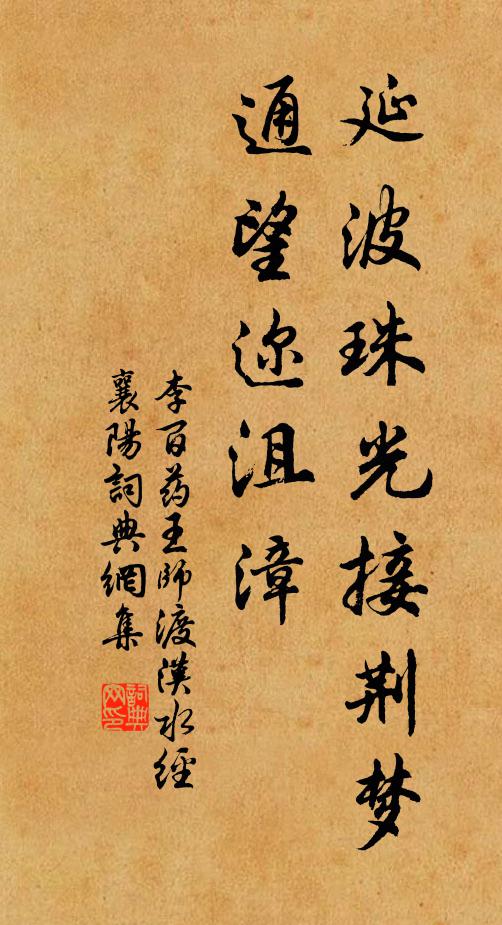 延波珠光接荆梦
通望迩沮漳
李百药王師渡漢水經
襄陽詞典網集
詞典
网印